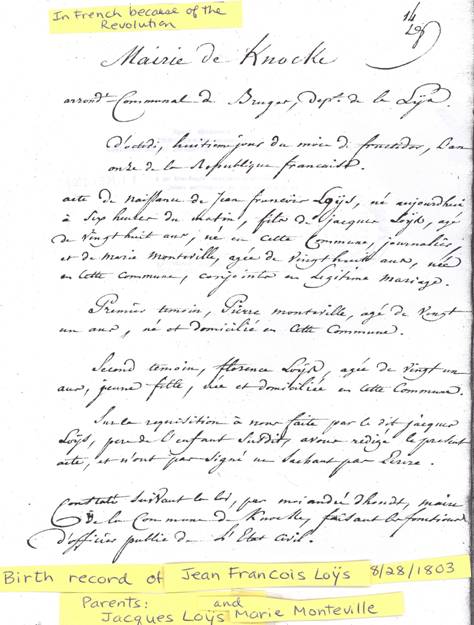 In French because of the
Revolution
14
Mairie de Knocke
arrondt Communal de Bruges, Dept. de la Lÿs.
D'octidi, huitieme jour du mois de fructidor, L'an
onze de la Republique francaise.
acte de Naissance de Jean francois Loÿs, né aujourdhui
à Six heures du matin, fils de jacques Loÿs, agé
de vingt huit ans, né en Cette Commune, journalier,
et de Marie Monteville, agée de vingt huit ans, née
en Cette Commune, conjointes en Légitime Mariage.
Premier temoin, Pierre Monteville, agé de Vingt
un ans, né et domicilié en Cette Commune.
Second temoin, florence Loÿs, agée de vingt un
ans, jeune fille, née et domiciliée en Cette Commune.
Sur la requisition à nous faite par le dit jacques
Loÿs, pere de L'enfant Susdit, avons redigé le present
acte, et n'ont pas Signé ne Sachant pas Ecrire.
Constaté Suivant la loi, par moi andré dhondt, maire
de la Commune de Knocke, faisant les fonctions
d'officier public de L'Etat Civil.
Birth record of Jean Francois Loÿs 8/28/1803
Parents: and
Jacques Loÿs Marie Monteville